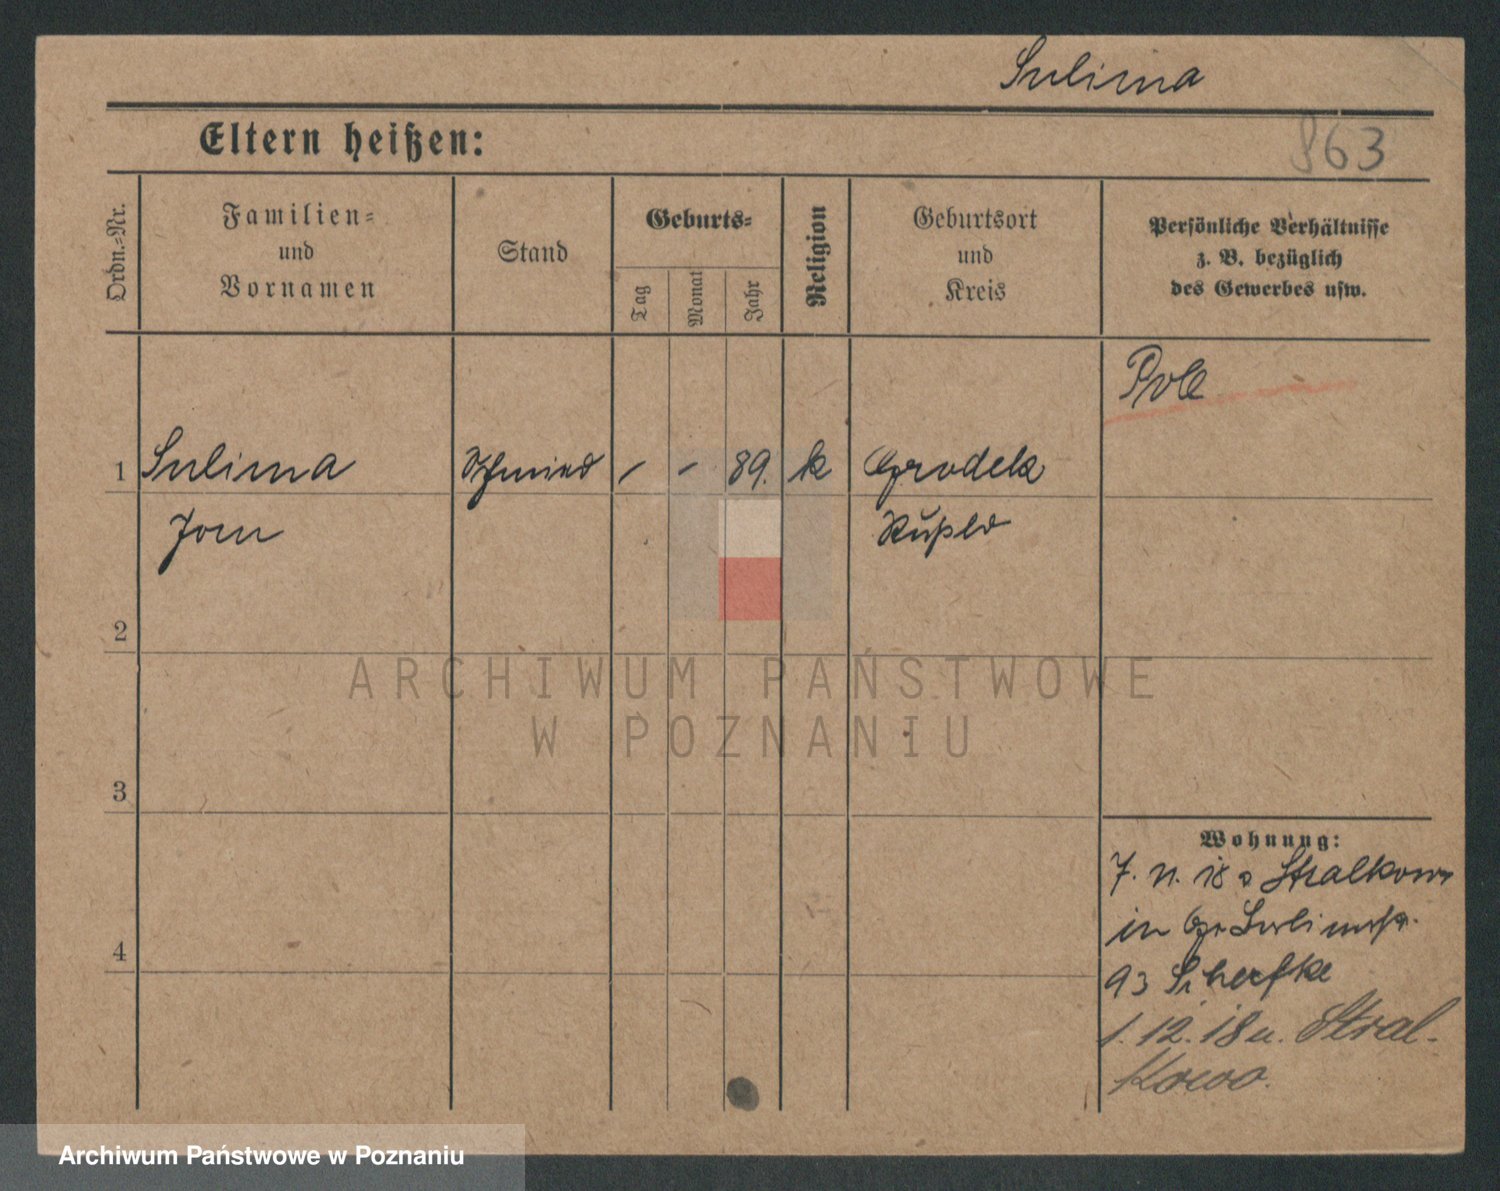 Sulima
Eltern heißen:
863
Ordn.=Nr.
Familien=
und
Vornamen
Stand
Geburts=
Tag
Monat
Jahr
Religion
Geburtsort
und
Kreis
Persönliche Verhältnisse
z. B. bezüglich
des Gewerbes usw.
Pole
1 Sulima Schmied - - 89. k Grodek
Rußld
2
3
4
ARCHIWUM PAŃSTWOWE
W POZNANIU
Wohnung:
7. 11. 18 Stralkowo
in
93 Scherfke
1. 12. 18 n. Stral-
kowo.
Archiwum Państwowe w Poznaniu